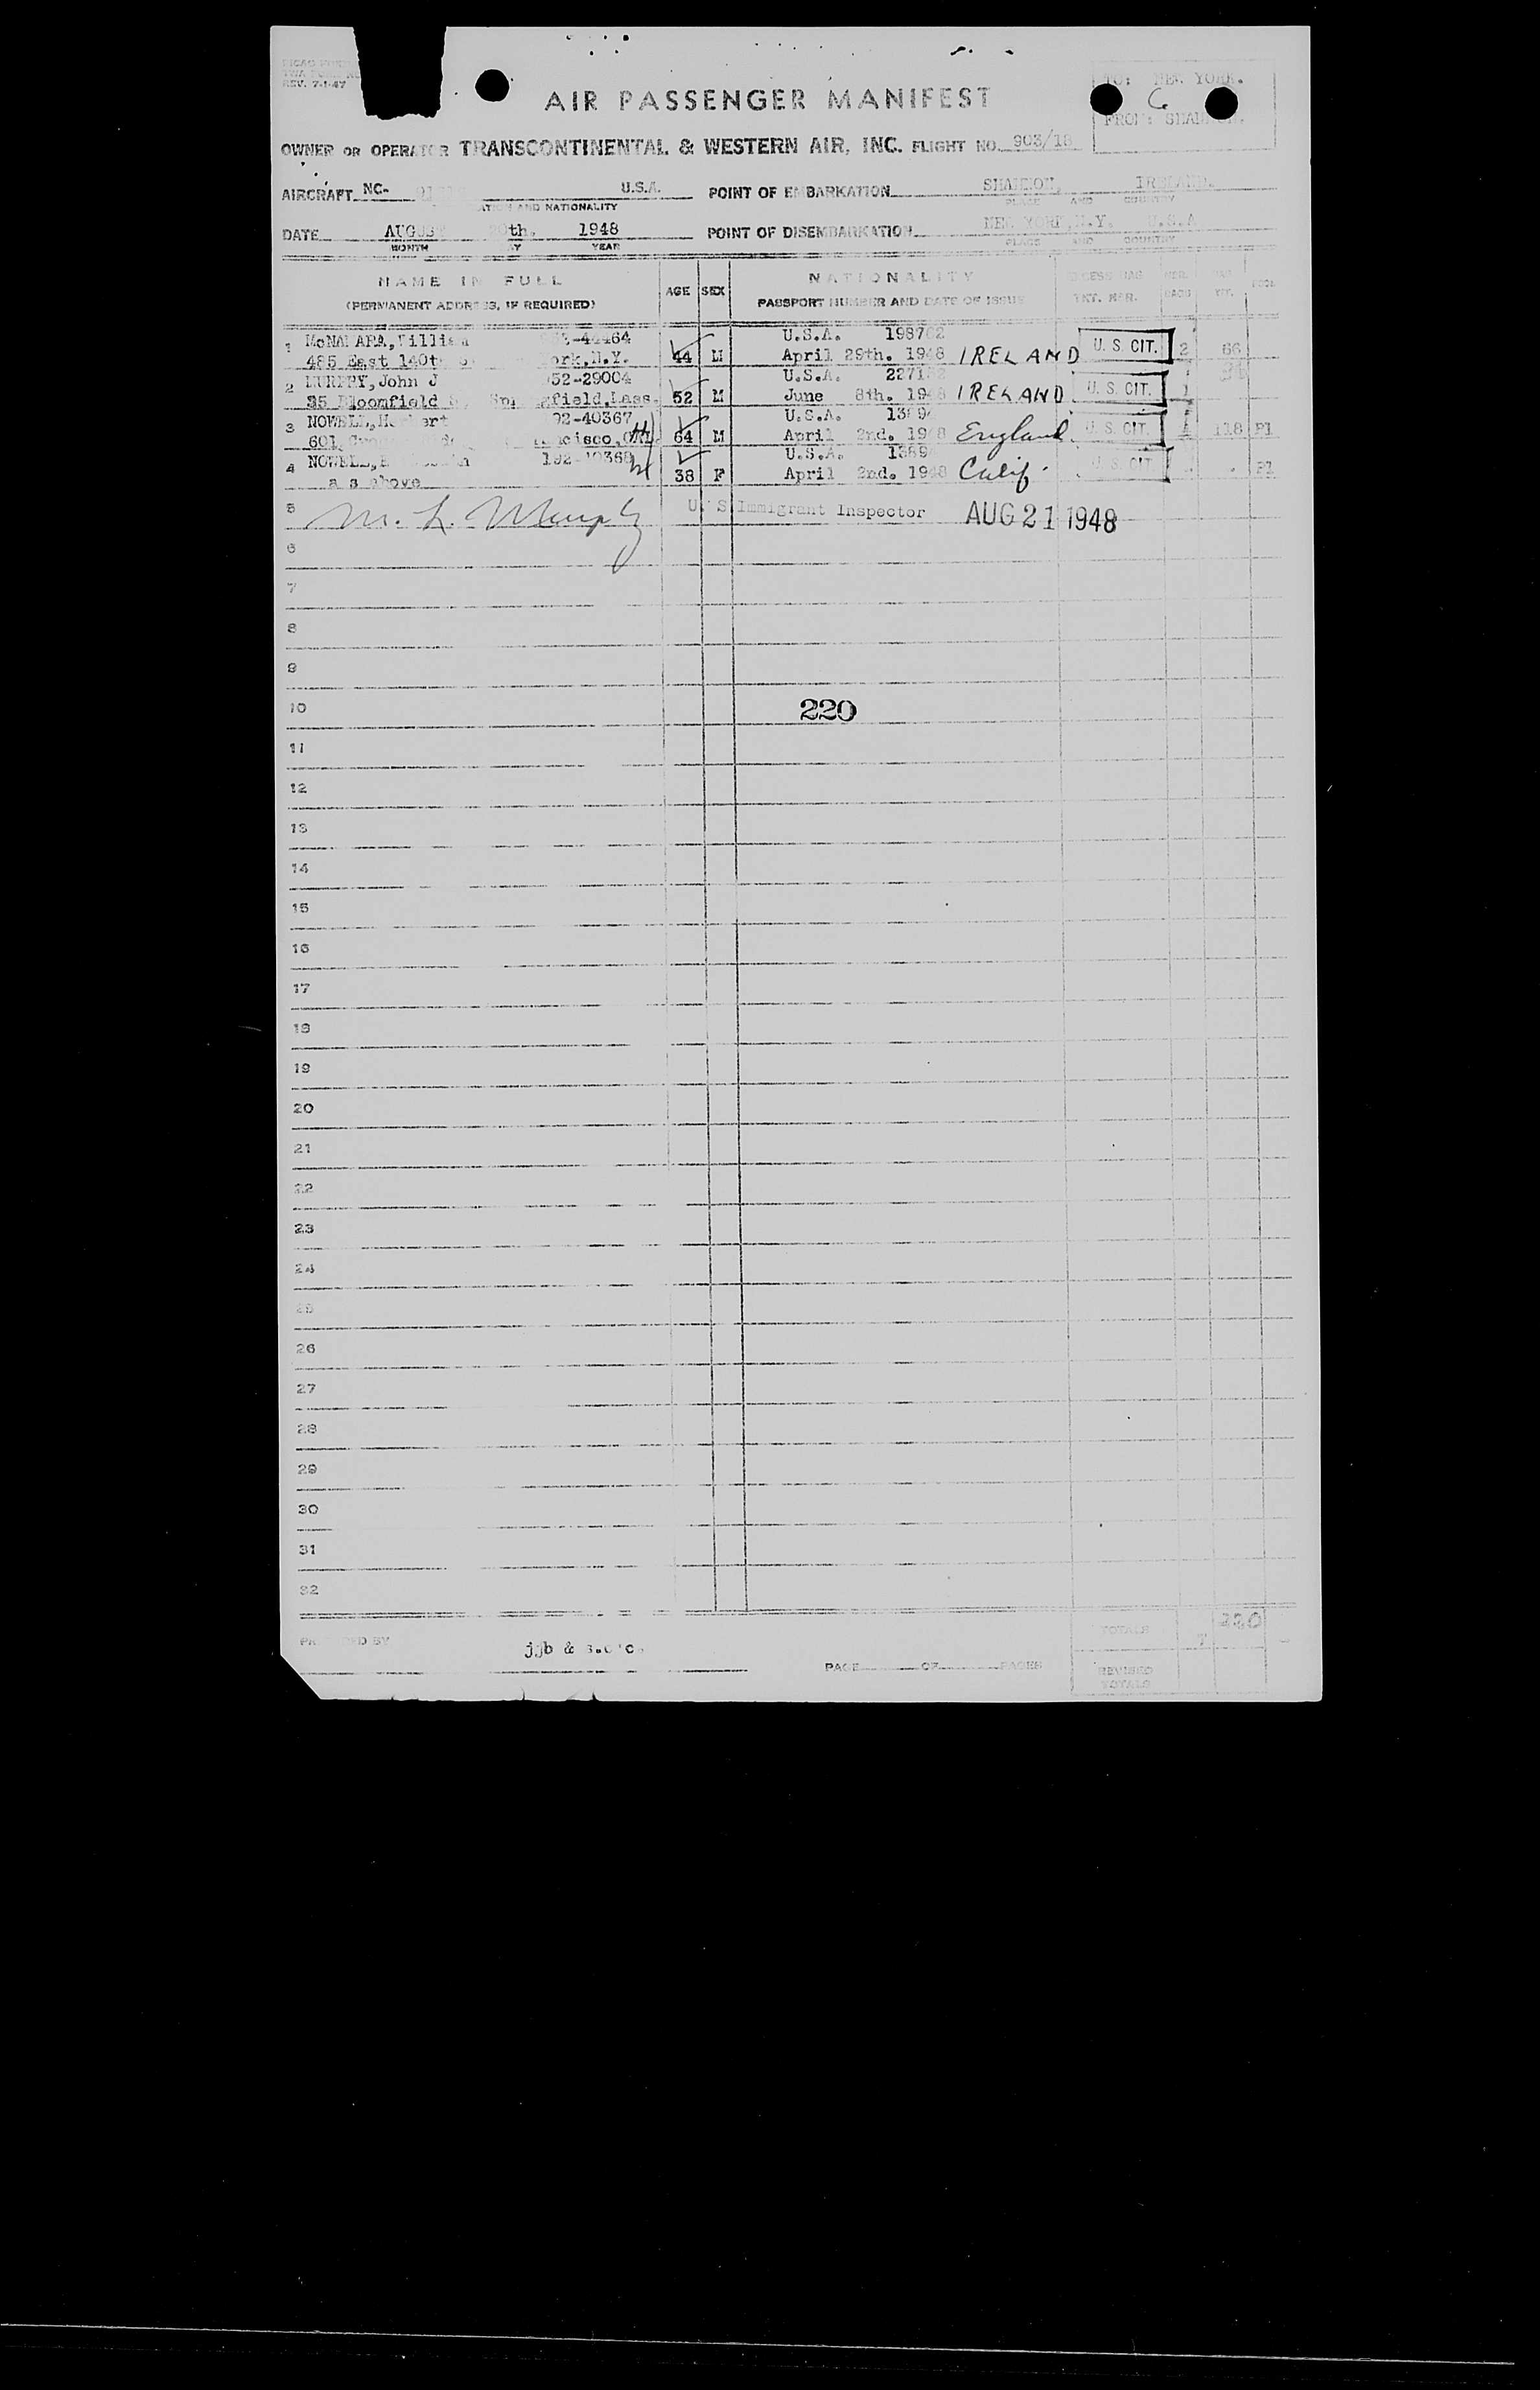 REV. 7-1-47
TO: NEW YORK.
C
FROM: SHANNON.
AIR PASSENGER MANIFEST
OWNER OR OPERATOR TRANSCONTINENTAL & WESTERN AIR, INC. FLIGHT NO. 903/18
AIRCRAFT NC- U.S.A. POINT OF EMBARKATION SHANNON, IRELAND.
AND NATIONALITY PLACE AND COUNTRY
DATE AUGUST th. 1948 POINT OF DISEMBARKATION NEW YORK, N.Y. U.S.A
MONTH YEAR PLACE AND COUNTRY
NAME IN FULL AGE SEX NATIONALITY
(PERMANENT ADDRESS, IF REQUIRED) PASSPORT NUMBER AND DATE OF ISSUE
1 McNAMARA, William -44464 U.S.A. 198702
485 East 140th York, N.Y. 44 M April 29th. 1948 IRELAND U. S. CIT. 2 66
2 MURPHY, John J 52-29004 U.S.A.
35 Bloomfield Springfield, Mass. 52 M June 8th. 1948 IRELAND U. S. CIT. 1
3 NOWELL, Herbert 92-40367 U.S.A.
601 64 M April 2nd. 1948 England U. S. CIT. 118 P1
4 NOWELL, 192-40368 U.S.A.
as above 38 F April 2nd. 1948 Calif. U. S. CIT. P1
5 M. L. Murphy U. S Immigrant Inspector AUG 21 1948
6
7
8
9
10 220
11
12
13
14
15
16
17
18
19
20
21
22
23
24
25
26
27
28
29
30
31
32
PREPARED BY jjb & PAGE OF PAGES TOTALS 7 220
REVISED TOTALS